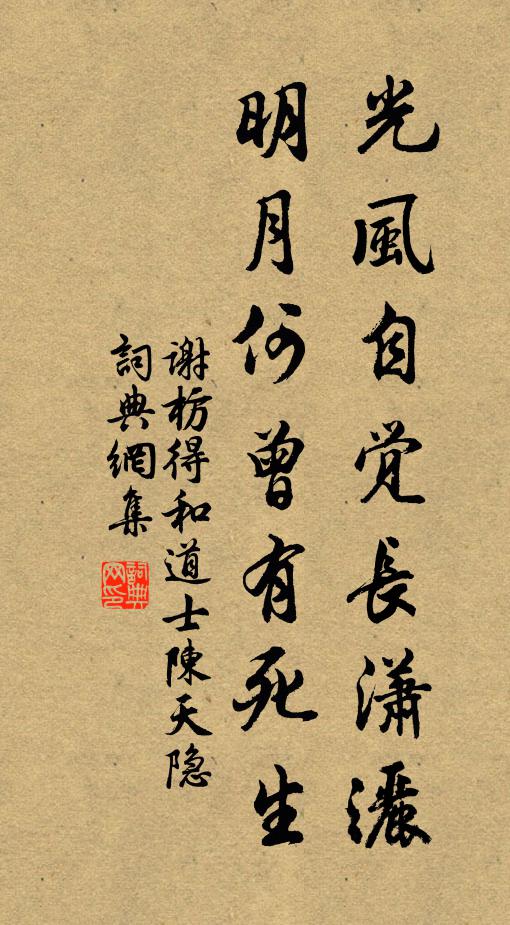 光風自觉長瀟灑
明月何曾有死生
谢枋得和道士陳天隐
詞典網集
詞典网印